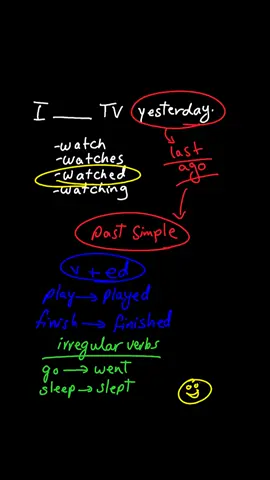 I ___ TV yesterday.
-watch
-watches
-watched
-watching
last
ago
past simple
v + ed
play → played
finish → finished
irregular verbs
go → went
sleep → slept